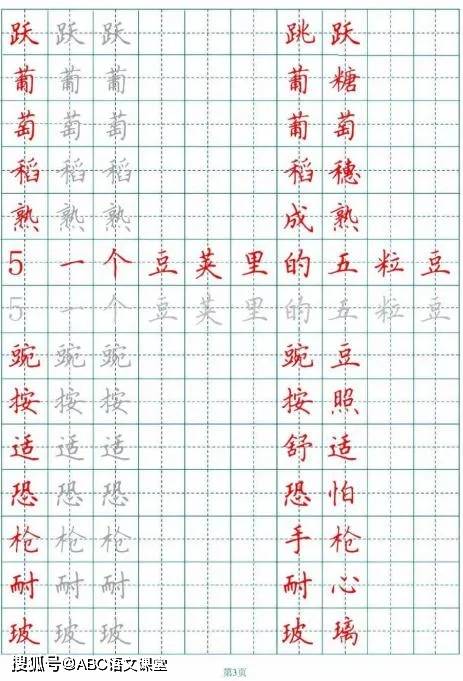 跃 跃 跃 跳 跃
葡 葡 葡 葡 糖
萄 萄 萄 葡 萄
稻 稻 稻 稻 穗
熟 熟 熟 成 熟
5 一 个 豆 荚 里 的 五 粒 豆
5 一 个 豆 荚 里 的 五 粒 豆
豌 豌 豌 豌 豆
按 按 按 按 照
适 适 适 舒 适
恐 恐 恐 恐 怕
枪 枪 枪 手 枪
耐 耐 耐 耐 心
玻 玻 玻 玻 璃
搜狐号@ABC语文课堂
第3页